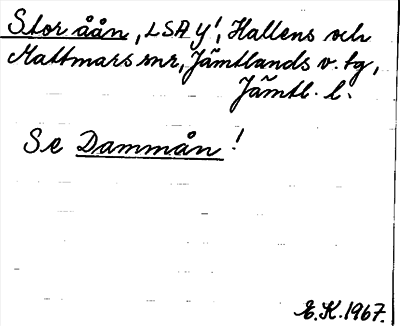 Stor åån, LSA y!, Hallens och
Mattmars snr, Jämtlands v. tg,
Jämtl. l.
Se Dammån!
E.K.1967.